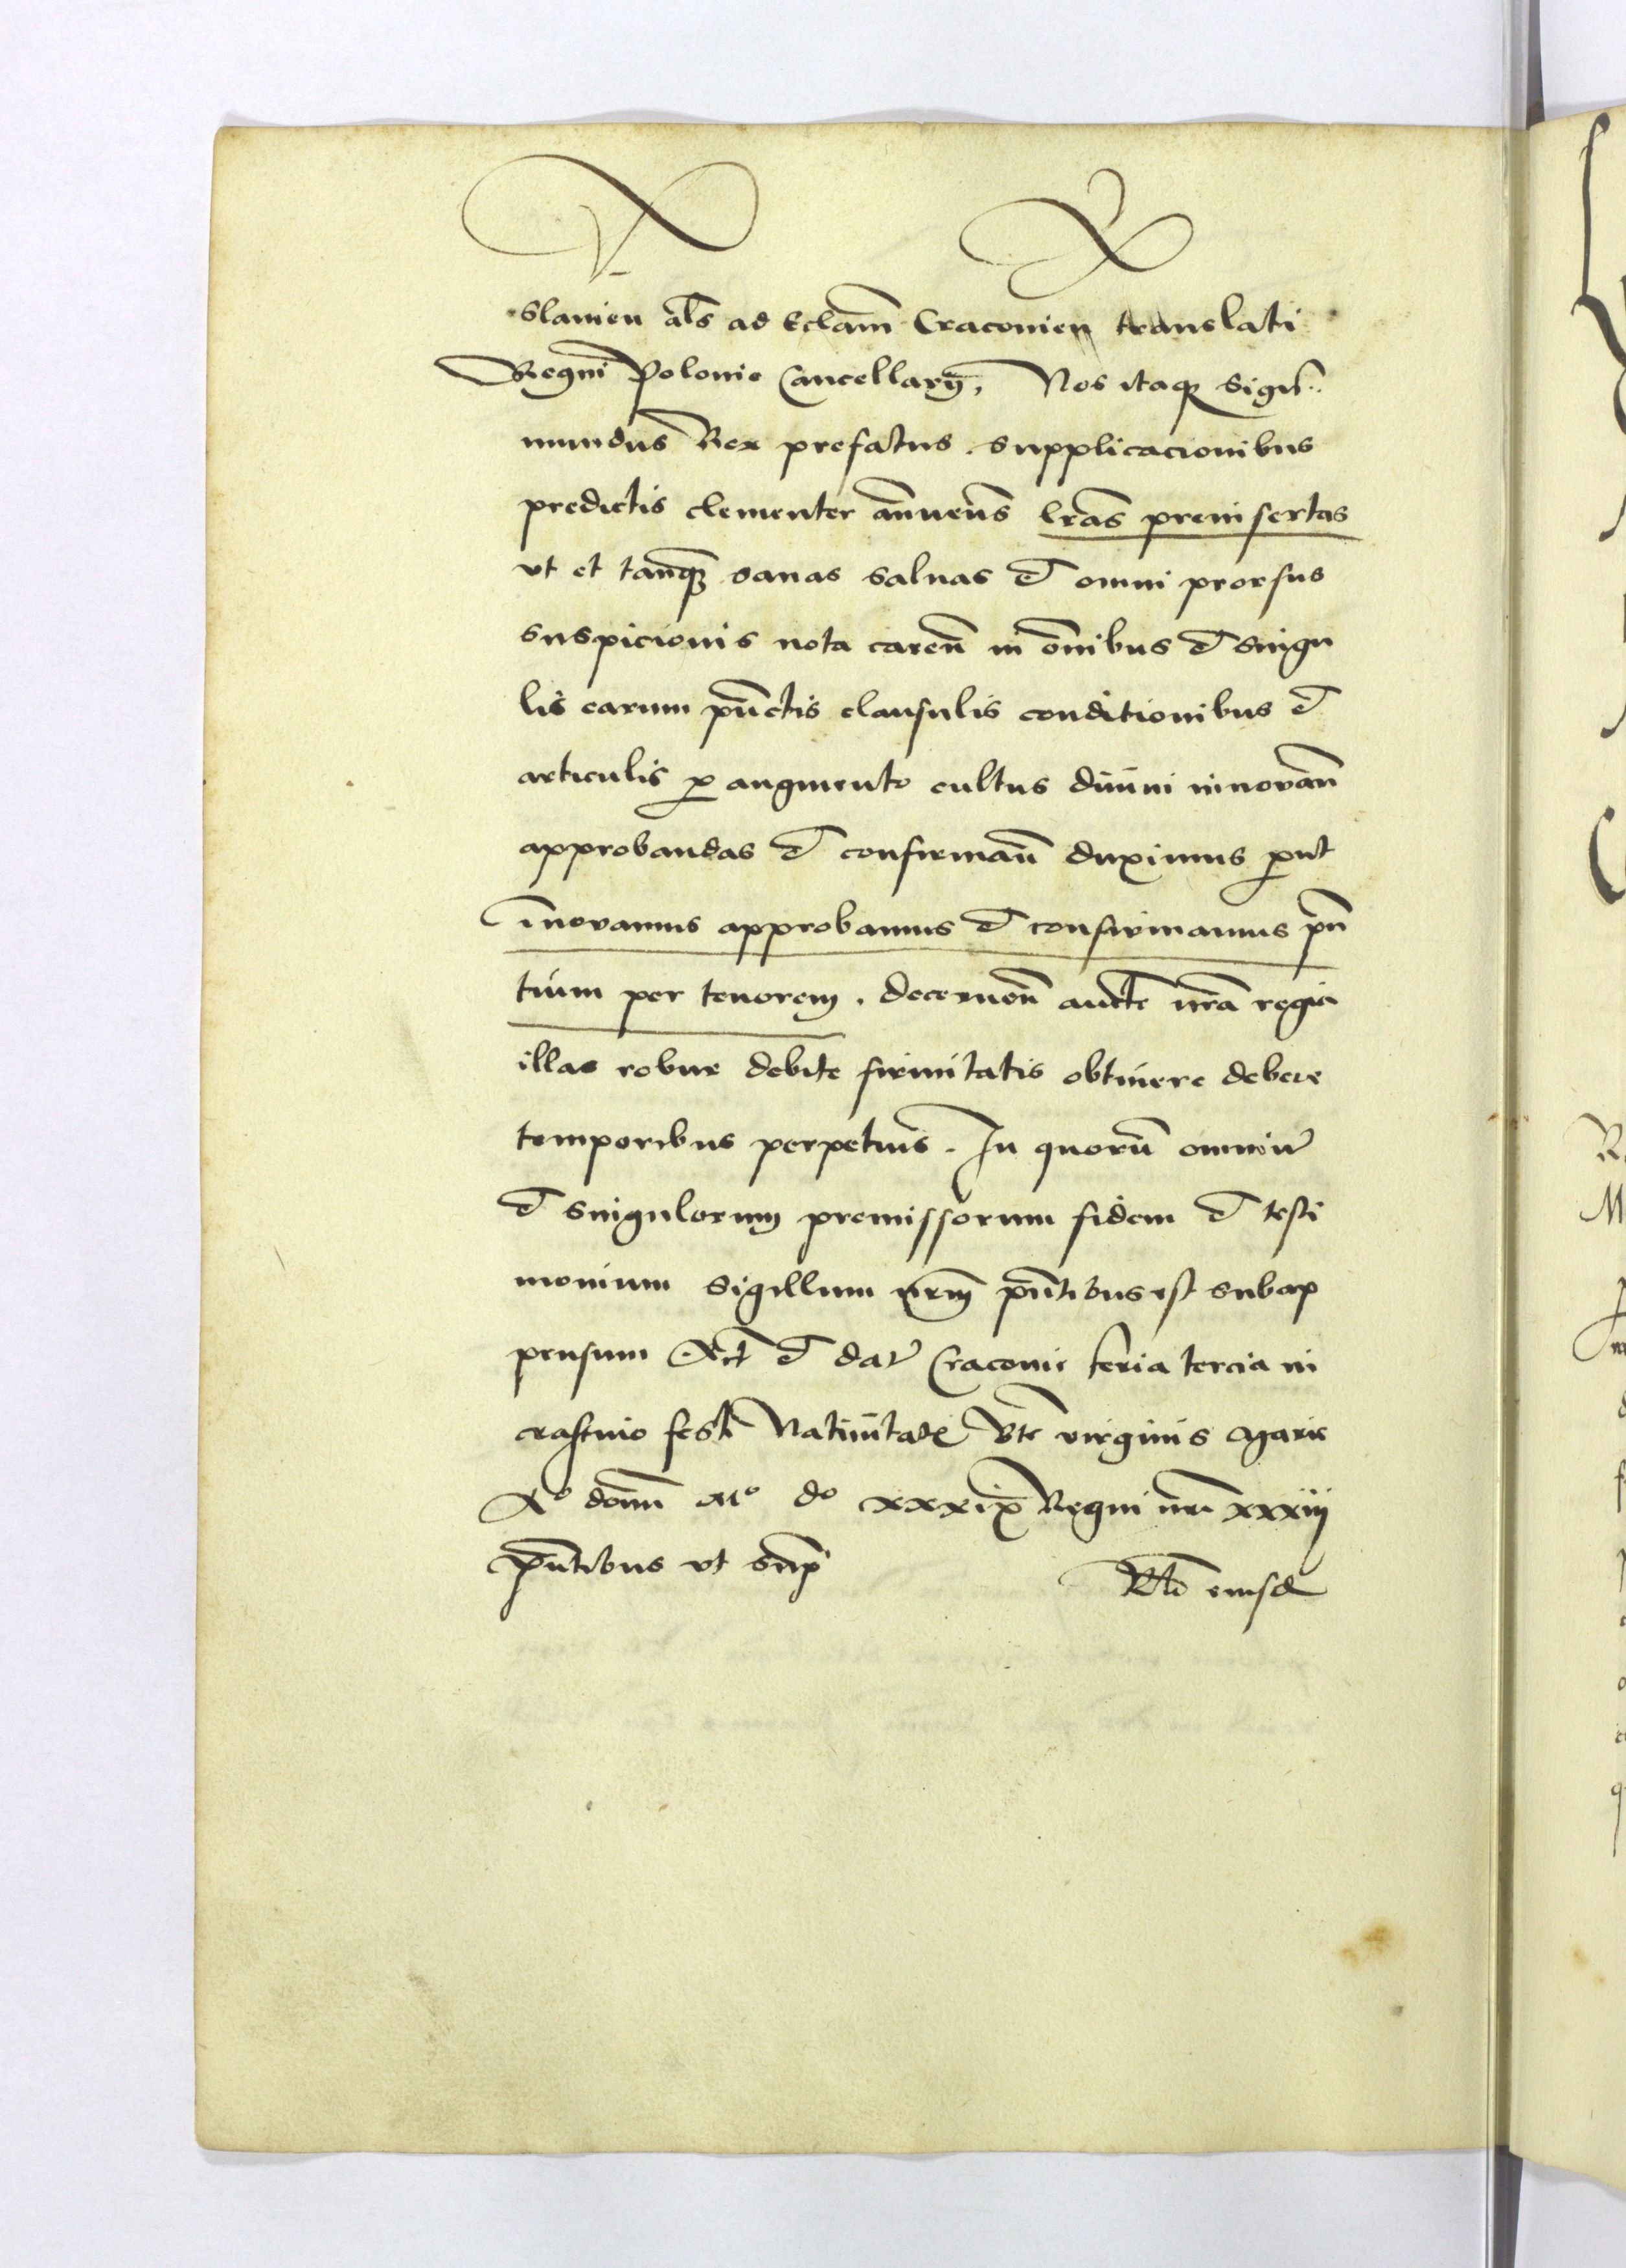 slavien als ad Ecclam Craconien translati
Regni Polonie Cancellarÿ, Nos itaqꝫ Sigis
mundus Rex prefatus. supplicacionibus
predictis clementer annuens lras preinsertas
vt et tanqꝫ sanas saluas et omni prorsus
suspicionis nota caren̄ in omibus et singu
lis earum punctis clausulis conditionibus et
articulis ꝓ augmento cultus diuini innouan̄
approbandas et confirman̄ duximus ꝓut
innouamus approbamus et confirmamus pn̄
tium per tenorem. decernen̄ aucte nr̄a regia
illas robur debite firmitatis obtinere debere
temporibus perpetuis. In quorū omniū
et singulorum premissorum fidem et testi
monium Sigillum nr̄m pn̄tibus est subap
pensum Act̄ et dat̄ Craconie feria tercia in
crastino festi Natiuitatis Bte virginis Marie
Aᵒ domi Mᵒ dᵒ xxxix Regni nr̄i xxxiij
Pn̄tibus vt sup̄
Rlo eiusd